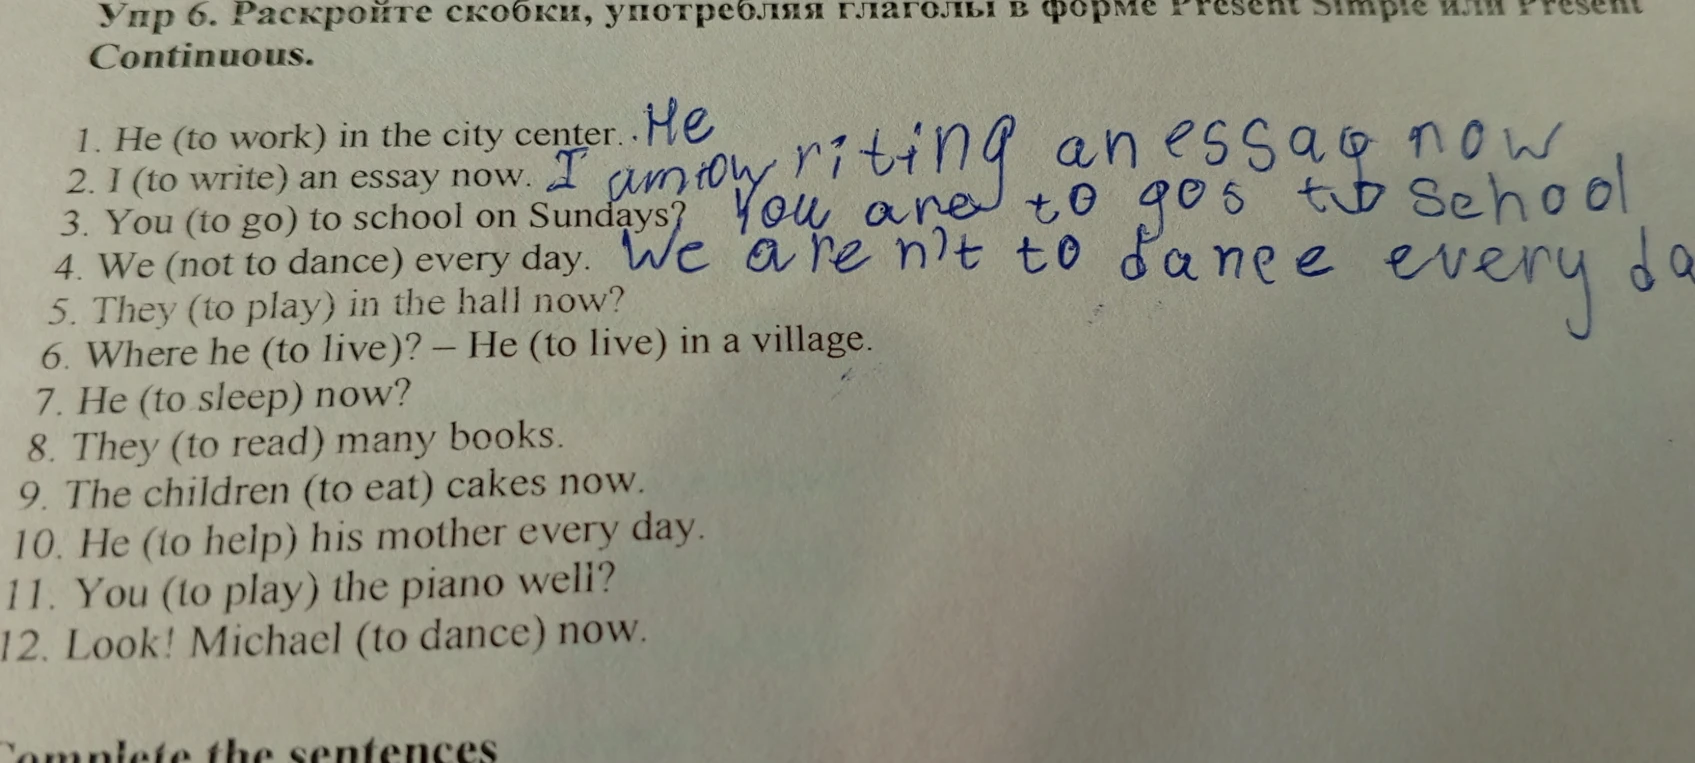 Упр 6. Раскройте скобки, употребляя глаголы в форме Present Simple или Present
Continuous.
1. He (to work) in the city center. . He
2. I (to write) an essay now. I am writing an essay now
3. You (to go) to school on Sundays? You are to gos to school
4. We (not to dance) every day. We aren't to dance every da
5. They (to play) in the hall now?
6. Where he (to live)? – He (to live) in a village.
7. He (to sleep) now?
8. They (to read) many books.
9. The children (to eat) cakes now.
10. He (to help) his mother every day.
11. You (to play) the piano well?
12. Look! Michael (to dance) now.
Complete the sentences